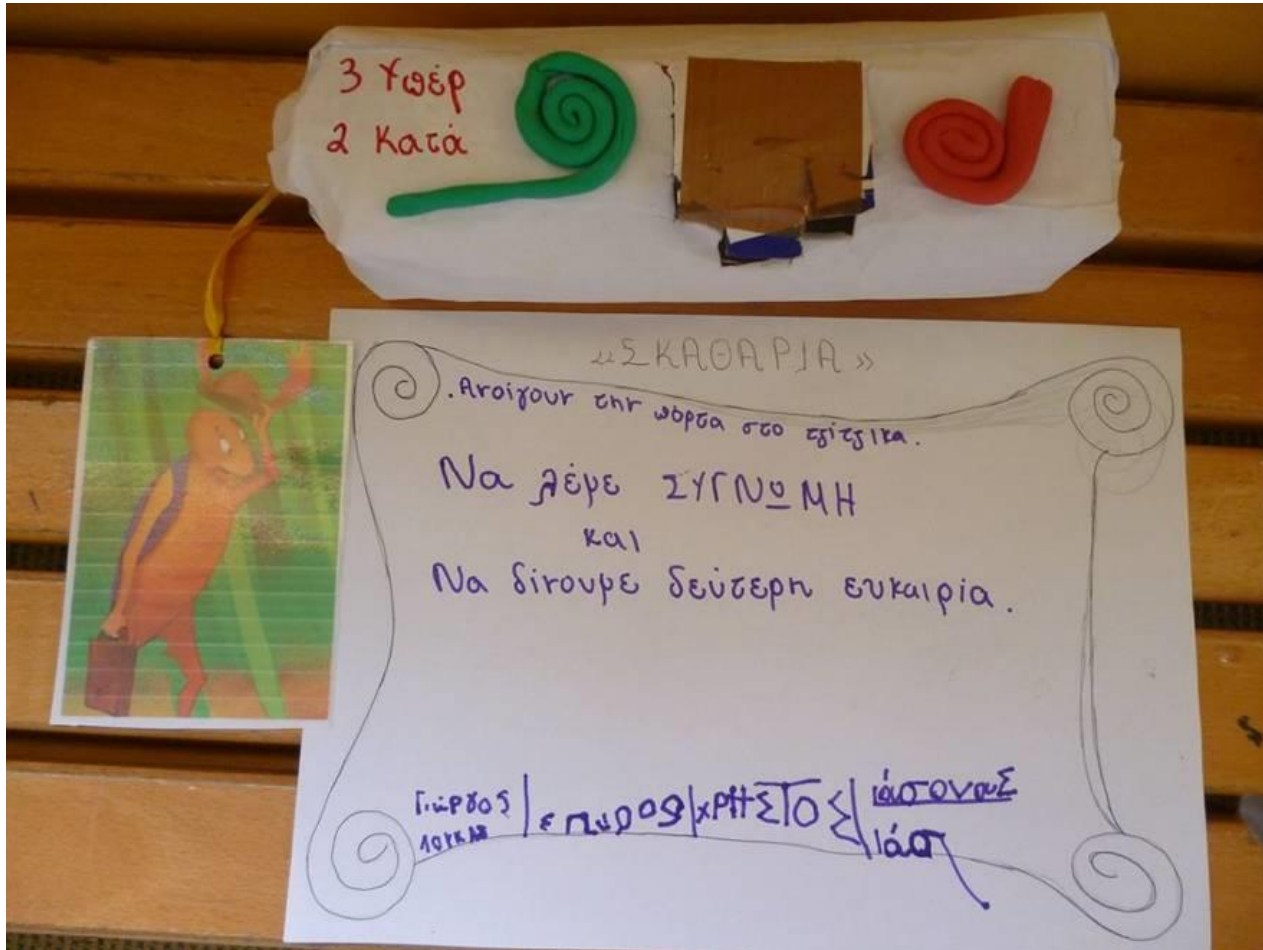 3 Υπέρ
2 Κατά
«ΣΚΑΘΑΡΙΑ»
. Ανοίγουν την πόρτα στο τζίτζικα.
Να λέμε ΣΥΓΝΩΜΗ
και
Να δίνουμε δεύτερη ευκαιρία.
Γιώργος | σπυρος | χΡΗΣΤΟΣ | ιάσονας
ιάσ